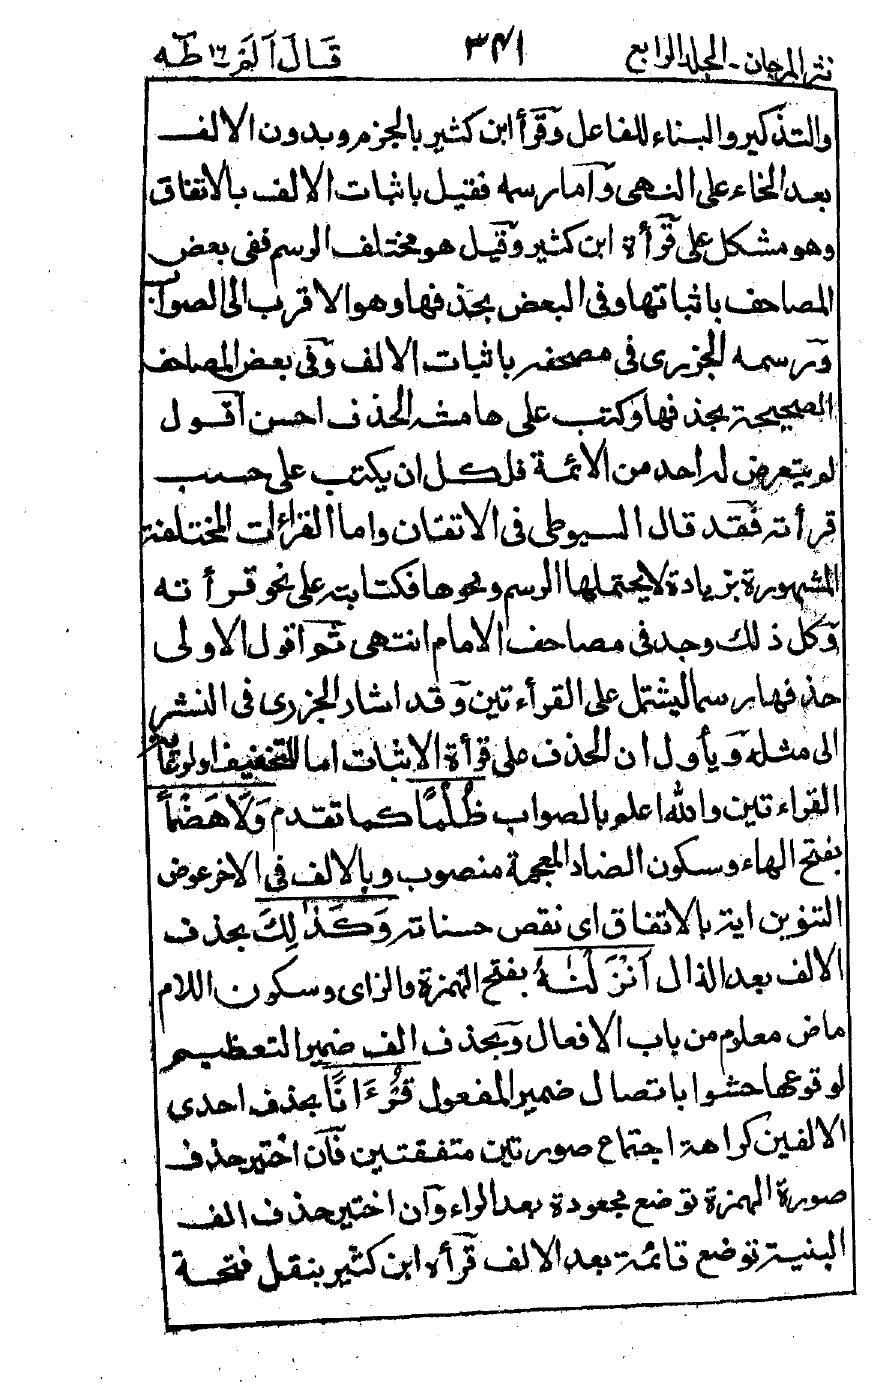 نثر المرجان - المجلد الرابع ٣٤١ قَالَ اَلَمْ ١٦ طٰه
والتذكير والبناء للفاعل وقرأ ابن كثير بالجزم وبدون الالف
بعد الخاء على النهى واما رسمه فقيل باثبات الالف بالاتفاق
وهو مشكل على قرأة ابن كثير وقيل هو مختلف الرسم ففى بعض
المصاحف باثباتها وفى البعض بحذفها وهو الاقرب الى الصواب
ورسمه الجزرى فى مصحفه باثبات الالف وفى بعض المصاحف
الصحيحة بحذفها وكتب على هامشه الحذف احسن اقول
لم يتعرض له احد من الائمة فلكل ان يكتب على حسب
قرأته فقد قال السيوطى فى الاتقان واما القراءات المختلفة
المشهورة بزيادة لا يحتملها الرسم ونحوها فكتابته على نحو قرأته
وكل ذلك وجد فى مصاحف الامام انتهى ثم اقول الاولى
حذفها رسما ليشتمل على القرأتين وقد اشار الجزرى فى النشر
الى مثله ويأول ان الحذف على قرأة الاثبات اما للتخفيف او لرعاية
القراءتين والله اعلم بالصواب ظُلْمًا كما تقدم وَلَا هَضْمًا
بفتح الهاء وسكون الضاد المعجمة منصوب وبالالف فى الاخر عوض
التنوين اية بالاتفاق اى نقص حسناته وَكَذٰلِكَ بحذف
الالف بعد الذال اَنْزَلْنٰهُ بفتح الهمزة والزاى وسكون اللام
ماض معلوم من باب الافعال وبحذف الف ضمير التعظيم
لوقوعها حشوا باتصال ضمير المفعول قُرْءَانًا بحذف احدى
الالفين كراهة اجتماع صورتين متفقتين فان اختير حذف
صورة الهمزة توضع مجعودة بعد الراء وان اختير حذف الف
البنية توضع قائمة بعد الالف قرأه ابن كثير بنقل فتحة